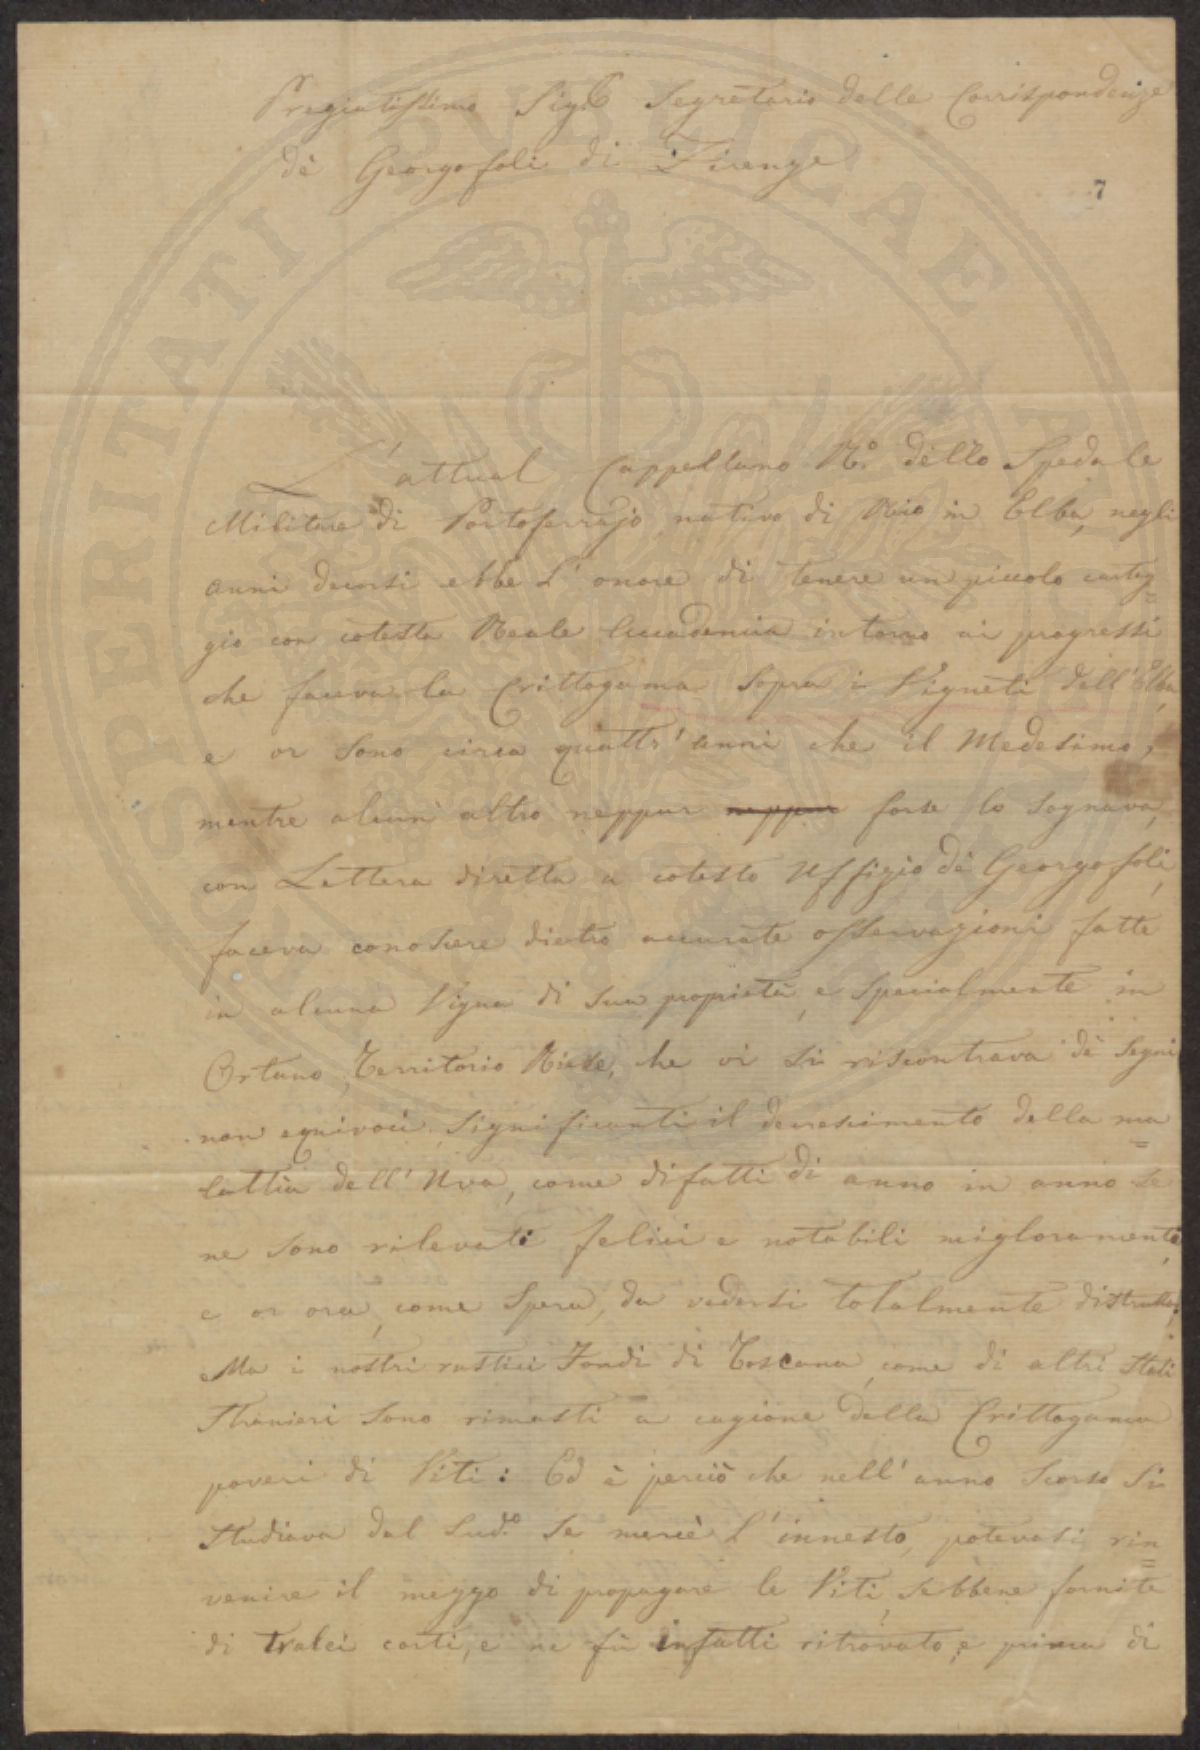 Pregiatissimo Sig.r Segretario delle Corrispondenze
de' Georgofoli di Firenze
7
L'attual Cappellano R.o dello Spedale
Militare di Portoferrajo, nativo di Rio in Elba, negli
anni decorsi ebbe l'onore di tenere un piccolo carteg=
gio con cotesta Reale Accademia intorno ai progressi
che faceva la Crittogama sopra i Vigneti dell'Elba,
e or sono circa quattr'anni che il Medesimo,
mentre alcun altro neppur neppur forse lo sognava,
con Lettera diretta a cotesto Uffizio de' Georgofoli,
faceva conoscere dietro accurate osservazioni fatte
in alcuna Vigna di sua proprietà, e specialmente in
Ortano, Territorio Riese, che vi si riscontrava de' segni
non equivoci significanti il decrescimento della ma=
lattia dell'Uva, come difatti di anno in anno se
ne sono rilevati felici e notabili miglioramenti,
e or ora, come spera, da vedersi totalmente distrutta.
Ma i nostri rustici Fondi di Toscana, come di altri Stati
Stranieri sono rimasti a cagione della Crittogama
poveri di Viti: Ed è perciò che nell'anno scorso si
studiava dal Sud.o se mercè l'innesto, potevasi rin=
venire il mezzo di propagare le Viti, sebbene fornite
di tralci corti, e ne fù infatti ritrovato; e prima di
PROSPERITATI PVBLICAE AVGENDAE